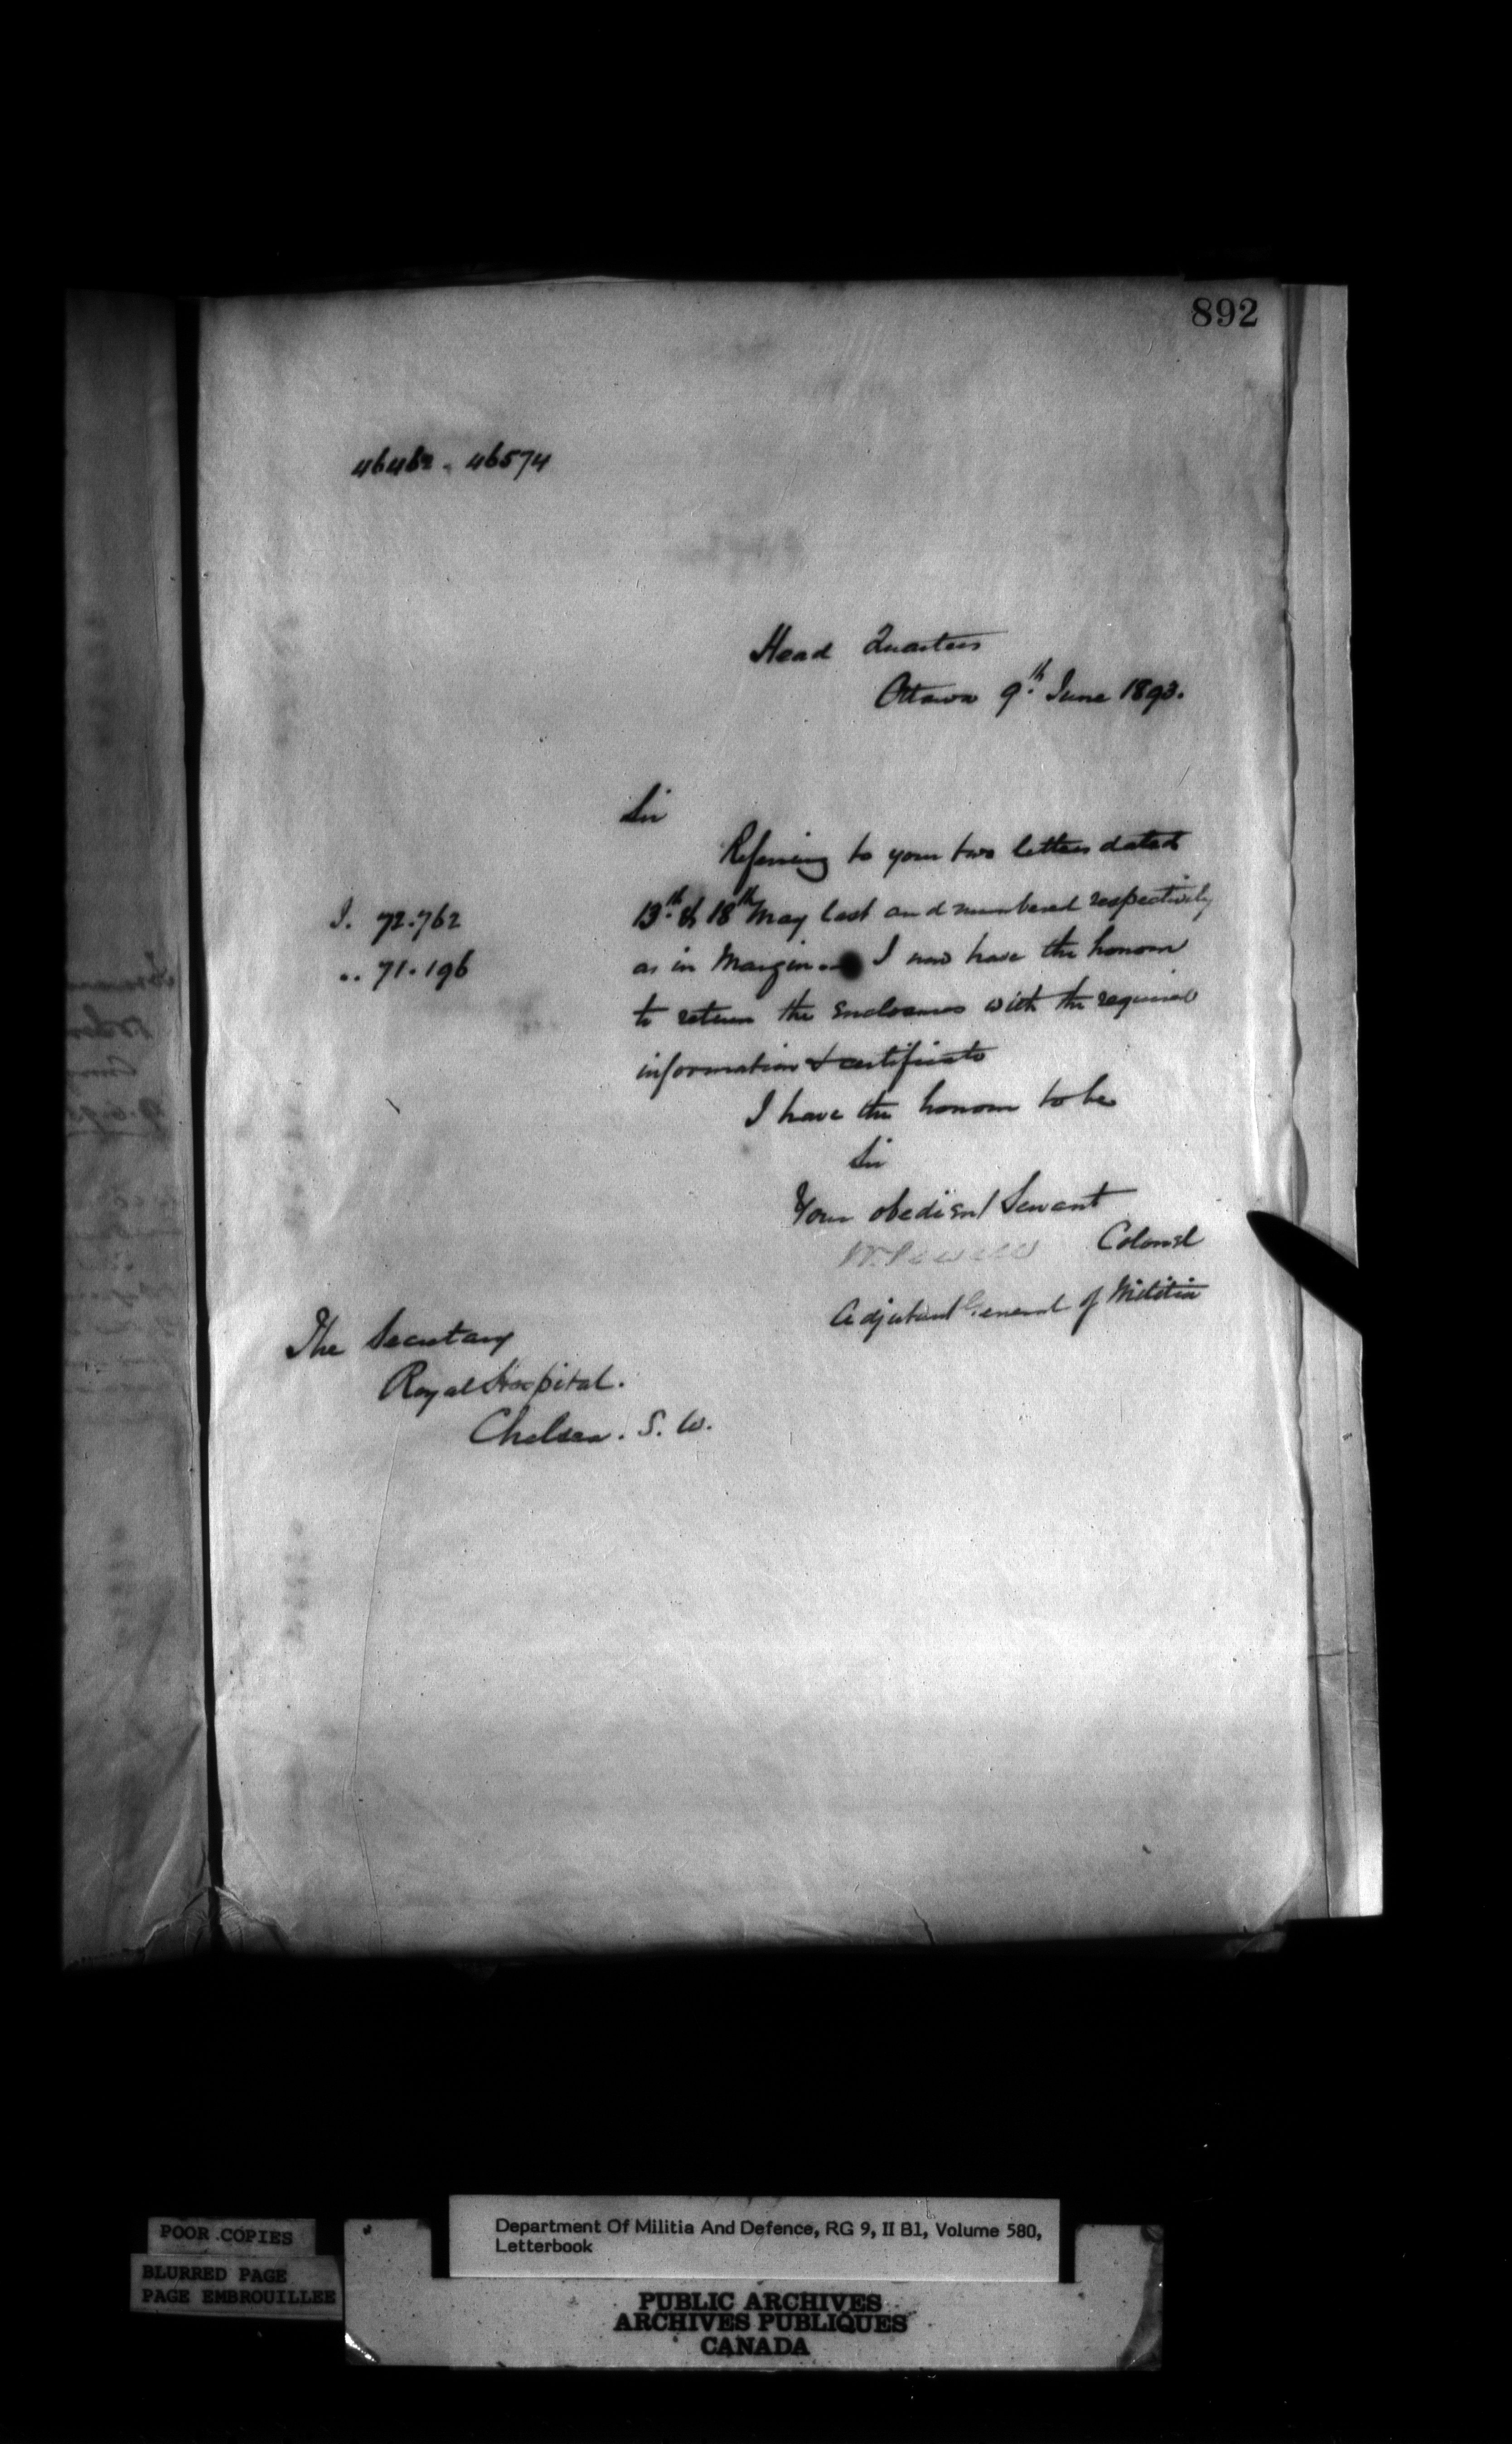 892
46462 . 46574
Head Quarters
Ottawa 9th June 1893.
Sir
Referring to your two letters dated
13th & 18th May last and numbered respectively
J. 72.762
as in Margin. I now have the honour
.. 71.196
to return the Enclosures with the required
information & certificate
I have the honour to be
Sir
Your obedient Servant
W Powell Colonel
Adjutant General of Militia
The Secretary
Royal Hospital.
Chelsea. S. W.
POOR COPIES
BLURRED PAGE
PAGE EMBROUILLEE
Department Of Militia And Defence, RG 9, II B1, Volume 580,
Letterbook
PUBLIC ARCHIVES
ARCHIVES PUBLIQUES
CANADA